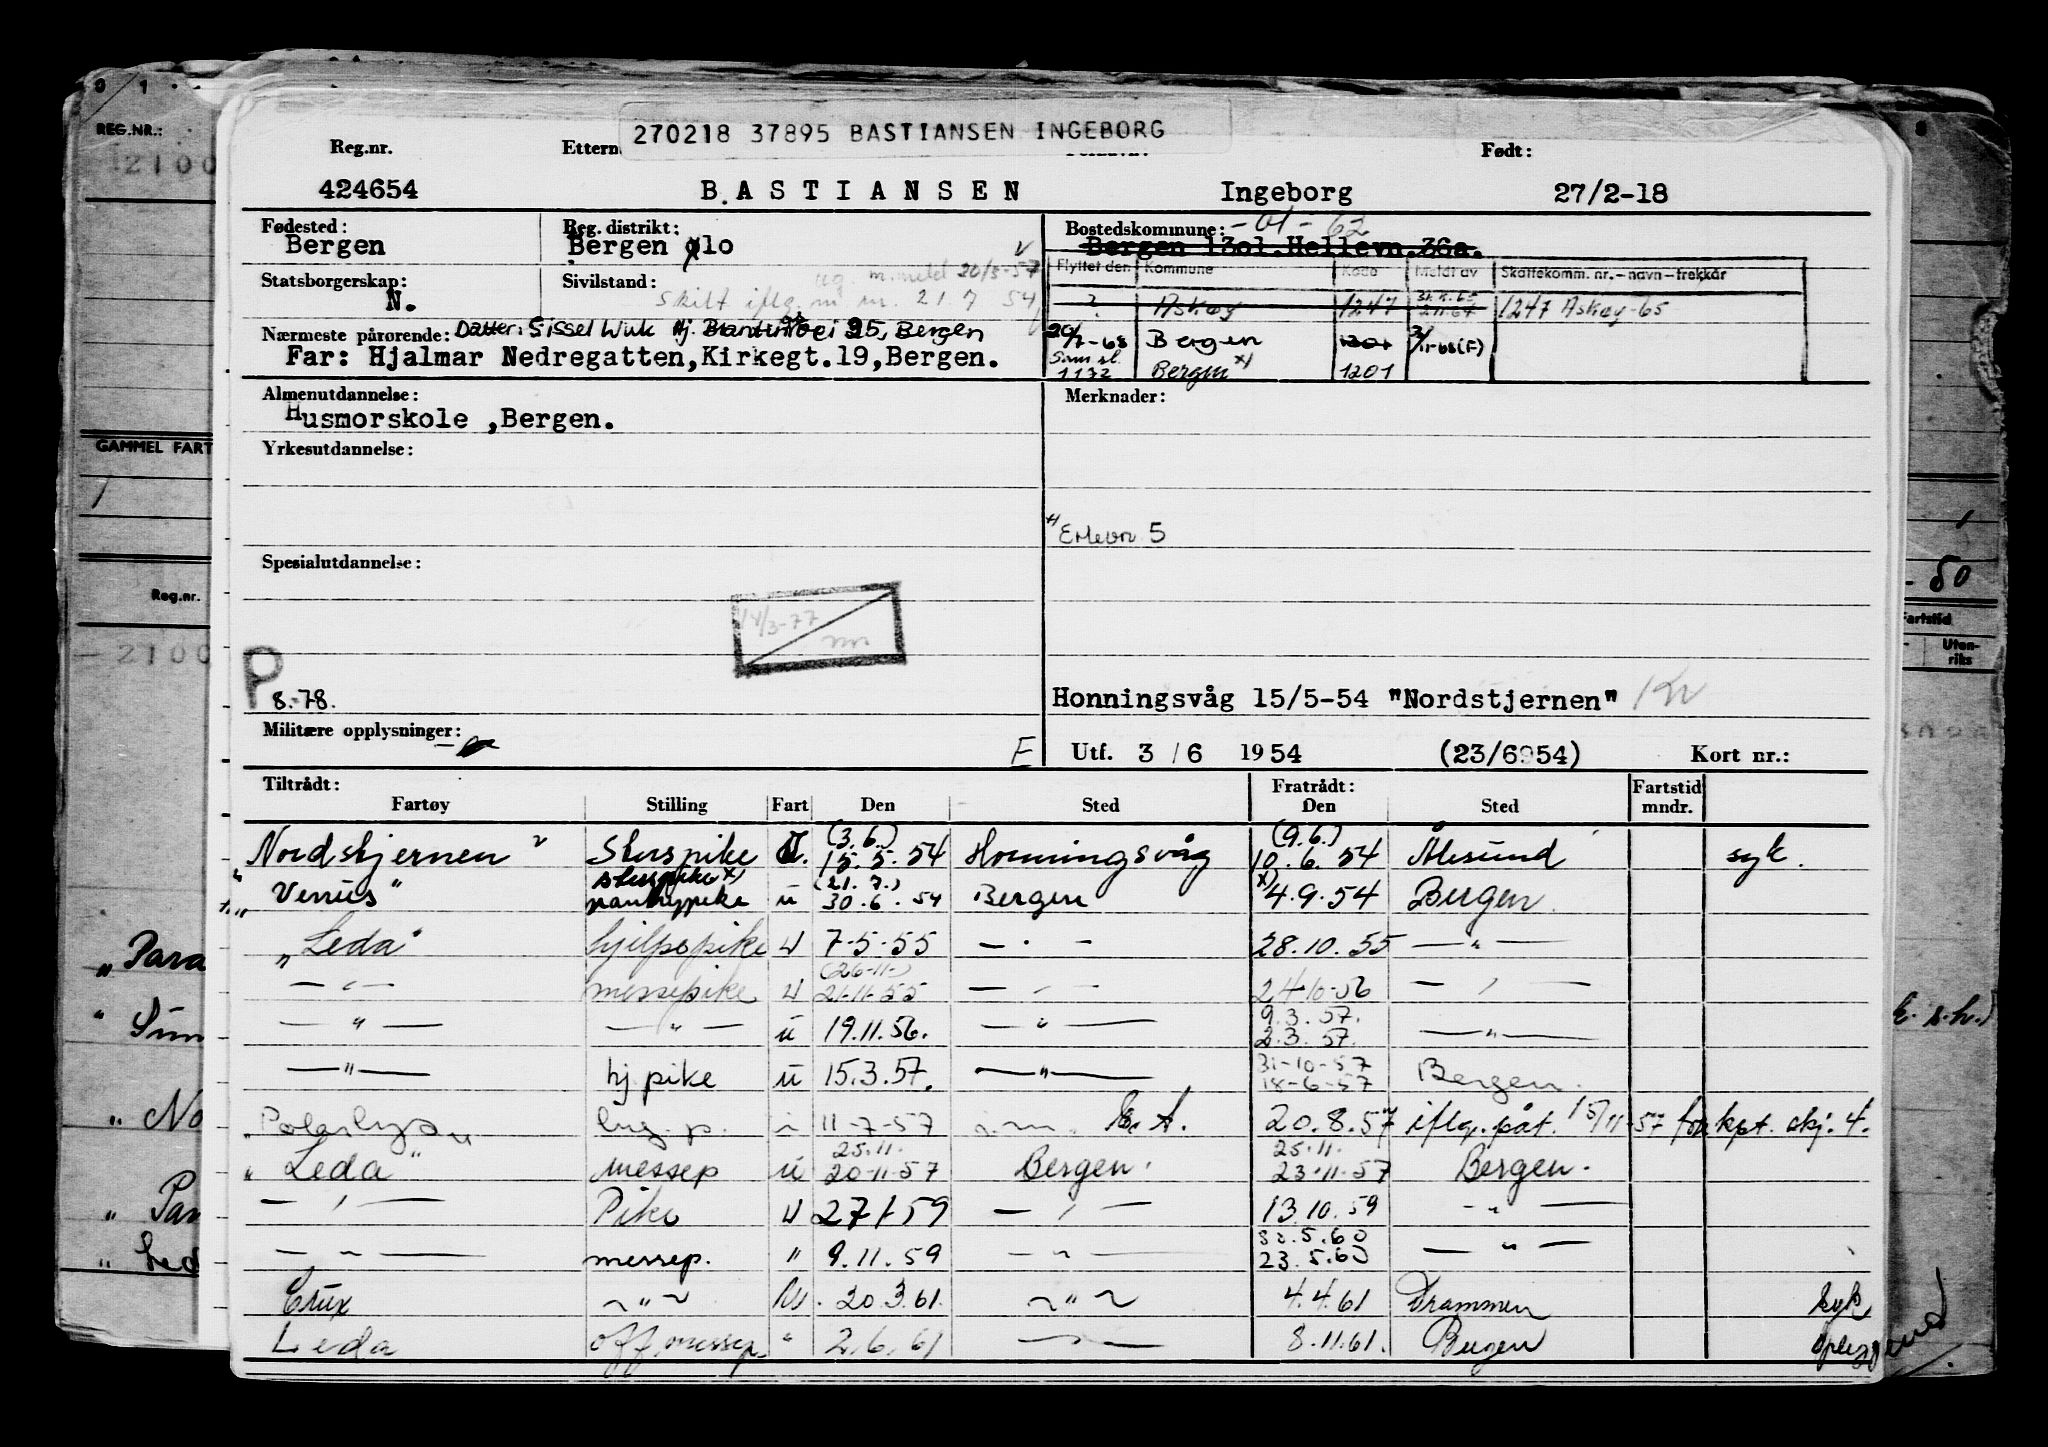 270218 37895 BASTIANSEN INGEBORG
Reg.nr. Ettern Født:
424654 B.ASTIANSEN Ingeborg 27/2-18
Fødested: Reg. distrikt: Bostedskommune: -01-62
Bergen Bergen ølo Bergen 13o1.Hellevn.36a.
Flyttet den Kommune Kode Meldt av Skattekomm. nr.-navn-trekkår
Statsborgerskap: Sivilstand: m.meldt 20/8-57
N. Skilt iflg. m 21.7 54
? Askøy 1247 1247 Askøy-65
Nærmeste pårørende: Datter: Sissel Wiik 25, Bergen
Far: Hjalmar Nedregatten,Kirkegt.19,Bergen.
-68 Bergen 1201 -68(F)
Sam st. 1172 Bergen x) 1201
Almenutdannelse: Merknader:
Husmorskole ,Bergen.
Yrkesutdannelse:
Erlevn 5
Spesialutdannelse:
14/3-77
P
8.-78.
Honningsvåg 15/5-54 "Nordstjernen"
Militære opplysninger:
E Utf. 3/6 1954 (23/6954) Kort nr.:
Tiltrådt: Fratrådt: Fartstid
Fartøy Stilling Fart Den Sted Den Sted mndr.
(3.6.) (9.6.)
Nordstjernen" 15.5.54 Honningsvåg 10.6.54 Ålesund syk.
x) (21.7.) x)
"Venus" pantrypike u 30.6.54 Bergen 4.9.54 Bergen.
"Leda" hjelpepike u 7-5-55 - " - 28.10.55 - " -
(26-11-)
- " - messepike u 21-11-55 - " - 24-10-56 - " -
9.3.57.
- " - - " - u 19.11.56. - " - 2.3.57. - " -
31-10-57
- " - hj pike u 15.3.57. - " - 18-6-57 Bergen.
11-7-57 20.8.57 iflg. påt. 15/11-57 kpt. skj. 4.
25.11. 25.11.
"Leda" messep u 20-11-57 Bergen. 23-11-57 Bergen.
- " - Pike u 27/ 59 - " - 13.10.59 - " -
5.60
- " - messep. " 9.11.59 - " - 23.5.60 - " -
Crux ~ " ~ 20.3.61. ~ " ~ 4.4.61 Drammen syk
Leda off.messep. " 2.6.61 8.11.61. Bergen
REG.NR.:
2100
GAMMEL FART
Reg.nr.
2100
"Para
" Sun
" No
" Par
" Led
50
Fartstid
Uten-
riks